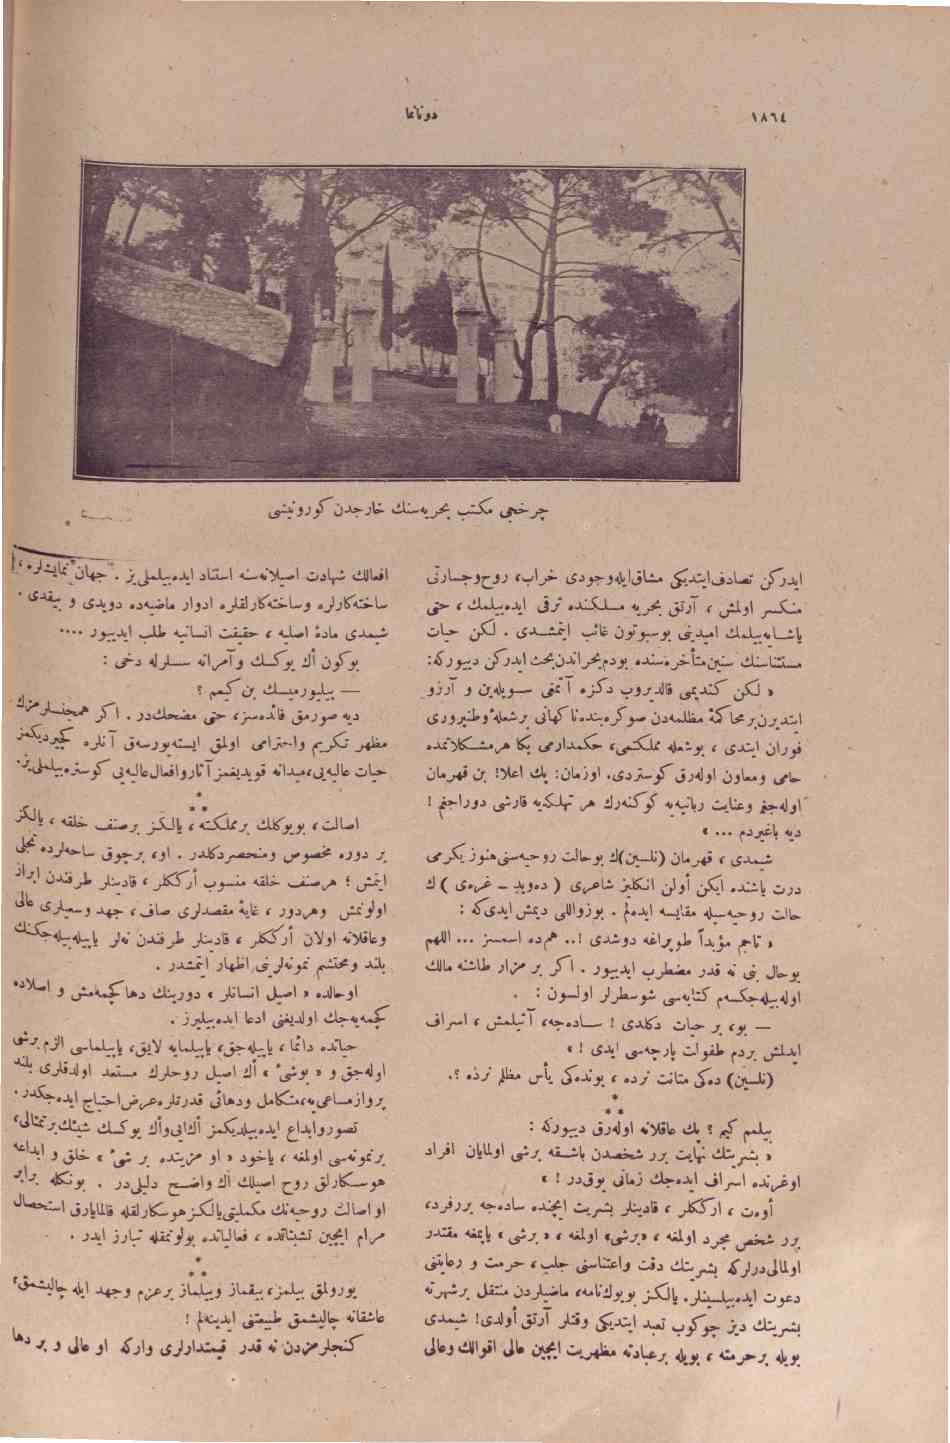 ١٨٦٤
دونانما
چرخجی مكتب بحریه‌سنك خارجدن كورونیشی
ایدركن تصادف‌ایتدیكی مشاق‌ایله‌وجودی خراب، روح‌وجسارتی
منكسر اولمش ، آرتق بحریه مسلكنده ترقی ایده‌بیلمك ، حتی
یاشایه‌بیلمك امیدینی بوسبوتون غائب ایتمشدی . لكن حیات
مستثناسنك سنین‌متأخره‌سنده بودم‌بحراندن‌بحث ایدركن دییوركه:
« لكن كندیمی قالدیروب دكزه آتمغی سویله‌ین و آرزو
ایتدیرن‌برمحاكمهٔ مظلمه‌دن صوكره‌بنده‌ناكهانی برشعلهٔ‌وطنپروری
فوران ایتدی ، بوشعله مملكتمی، حكمدارمی بكا هرمشكلاتمده
حامی ومعاون اوله‌رق كوستردی. اوزمان: پك اعلا! بن قهرمان
اوله‌جغم وعنایت ربانیه‌یه كوكنه‌رك هر تهلكه‌یه قارشی دوراجغم !
دیه باغیردم ... »
شیمدی ، قهرمان (نلسین)ك بو حالت روحیه‌سنی‌هنوز یكرمی
درت یاشنده ایكن أولن انكلیز شاعری ( ده‌وید – غره‌ی ) ك
حالت روحیه‌سیله مقایسه ایده‌لم . بوزواللی دیمش ایدی‌كه :
« تاجم مؤبداً طوپراغه دوشدی !.. هم‌ده اسمسز ... اللهم
بوحال بنی نه قدر مضطرب ایدییور . اكر بر مزار طاشنه مالك
اوله‌بیله‌جكسه‌م كتابه‌سی شوسطرلر اولسون :
— بو، بر حیات دكلدی ! ساده‌جه، آتیلمش ، اسراف
ایدلمش بردم طفولت پارچه‌سی ایدی ! »
(نلسین) ده‌كی متانت نرده ، بونده‌كی یأس مظلم نرذه ؟.
*
* *
بیلمم كیم ؟ پك عاقلانه اوله‌رق دییوركه :
« بشریتك نهایت برر شخصدن باشقه برشی اولمایان افراد
اوغرنده اسراف ایده‌جك زمانی یوق‌در ! »
أوه‌ت ، ارككلر ، قادینلر بشریت ایچنده ساده‌جه بررفرد،
برر شخص مجرد اولمغه ، «برشی» اولمغه ، «برشی» یاپمغه مقتدر
اولمالی‌درلركه بشریتك دقت واعتناسنی جلب، حرمت و رعایتنی
دعوت ایده‌بیلسینلر. یالكز بویوك‌نامه، ماضیلردن منتقل برشهرته
بشریتك دیز چوكوب تعبد ایتدیكی وقتلر آرتق أولدی! شیمدی
بویله برحرمته ، بویله برعبادته مظهریت ایچین عالی اقوالك وعالی
افعالك شهادت اصیلانه‌سنه استناد ایده‌بیلملی‌یز . جهان نمایشلره ،
ساخته‌كارلره وساخته‌كارلقلره ادوار ماضیه‌ده دویدی و بیقدی .
شیمدی مادهٔ اصلیه ، حقیقت انسانیه طلب ایدییور ....
بوكون أك یوكسك وآمرانه سسلرله دخی :
— بیلیورمیسك بن كیمم ؟
دیه صورمق فائده‌سز، حتی مضحك‌در . اكر همجنسلرمزك
مظهر تكریم واحترامی اولمق ایسته‌یورسه‌ق آنلره كچیردیكمز
حیات عالیه‌یی، میدانه قویدیغمز آثاروافعال‌عالیه‌یی كوستره‌بیلملی‌یز.
*
* *
اصالت، بویوكلك برمملكته ، یالكز برصنف خلقه ، یالكز
بر دوره مخصوص ومنحصردكلدر . او، برچوق ساحه‌لرده تجلی
ایتمش ؛ هرصنف خلقه منسوب أرككلر ، قادینلر طرفندن ابراز
اولونمش وهردور ، غایهٔ مقصدلری صاف، جهد وسعیلری عالی
وعاقلانه اولان أرككلر ، قادینلر طرفندن نه‌لر یاپیله‌بیله‌جكنك
بلند ومحتشم نمونه‌لرینی اظهار ایتمشدر .
اوحالده « اصیل انسانلر » دورینك دها كچمه‌مش و اصلاده
كچمه‌یه‌جك اولدیغنی ادعا ایده‌بیلیرز .
حیاتده دائما ، یاپیله‌جق، یاپیلمایه لایق، یاپیلماسی الزم برشی
اوله‌جق و « بوشی » أك اصیل روحلرك مستعد اولدقلری بلند
پروازمساعی‌یه،متكامل ودهائی قدرتلره‌عرض‌احتیاج ایده‌جكدر.
تصوروابداع ایده‌بیلدیكمز أك‌ایی‌وأك یوكسك شیئك‌برتمثالی،
برنمونه‌سی اولمغه ، یاخود « او مزیتده بر شی » خلق و ابداعه
هوسكارلق روح اصیلك أك واضح دلیلی‌در . بونكله برابر
اواصالت روحیه‌نك مكملیتی‌یالكزهوسكارلقله قالمایارق استحصال
مرام ایچین تشبثاتده ، فعالیاتده بولونمقله تبارز ایدر .
*
* *
یورولمق بیلمز، بیقماز وییلماز برعزم وجهد ایله چالیشمق،
عاشقانه چالیشمق طبیعتنی ایدینه‌لم !
كنجلرمزدن نه قدر قیمتدارلری واركه او عالی و بر دها